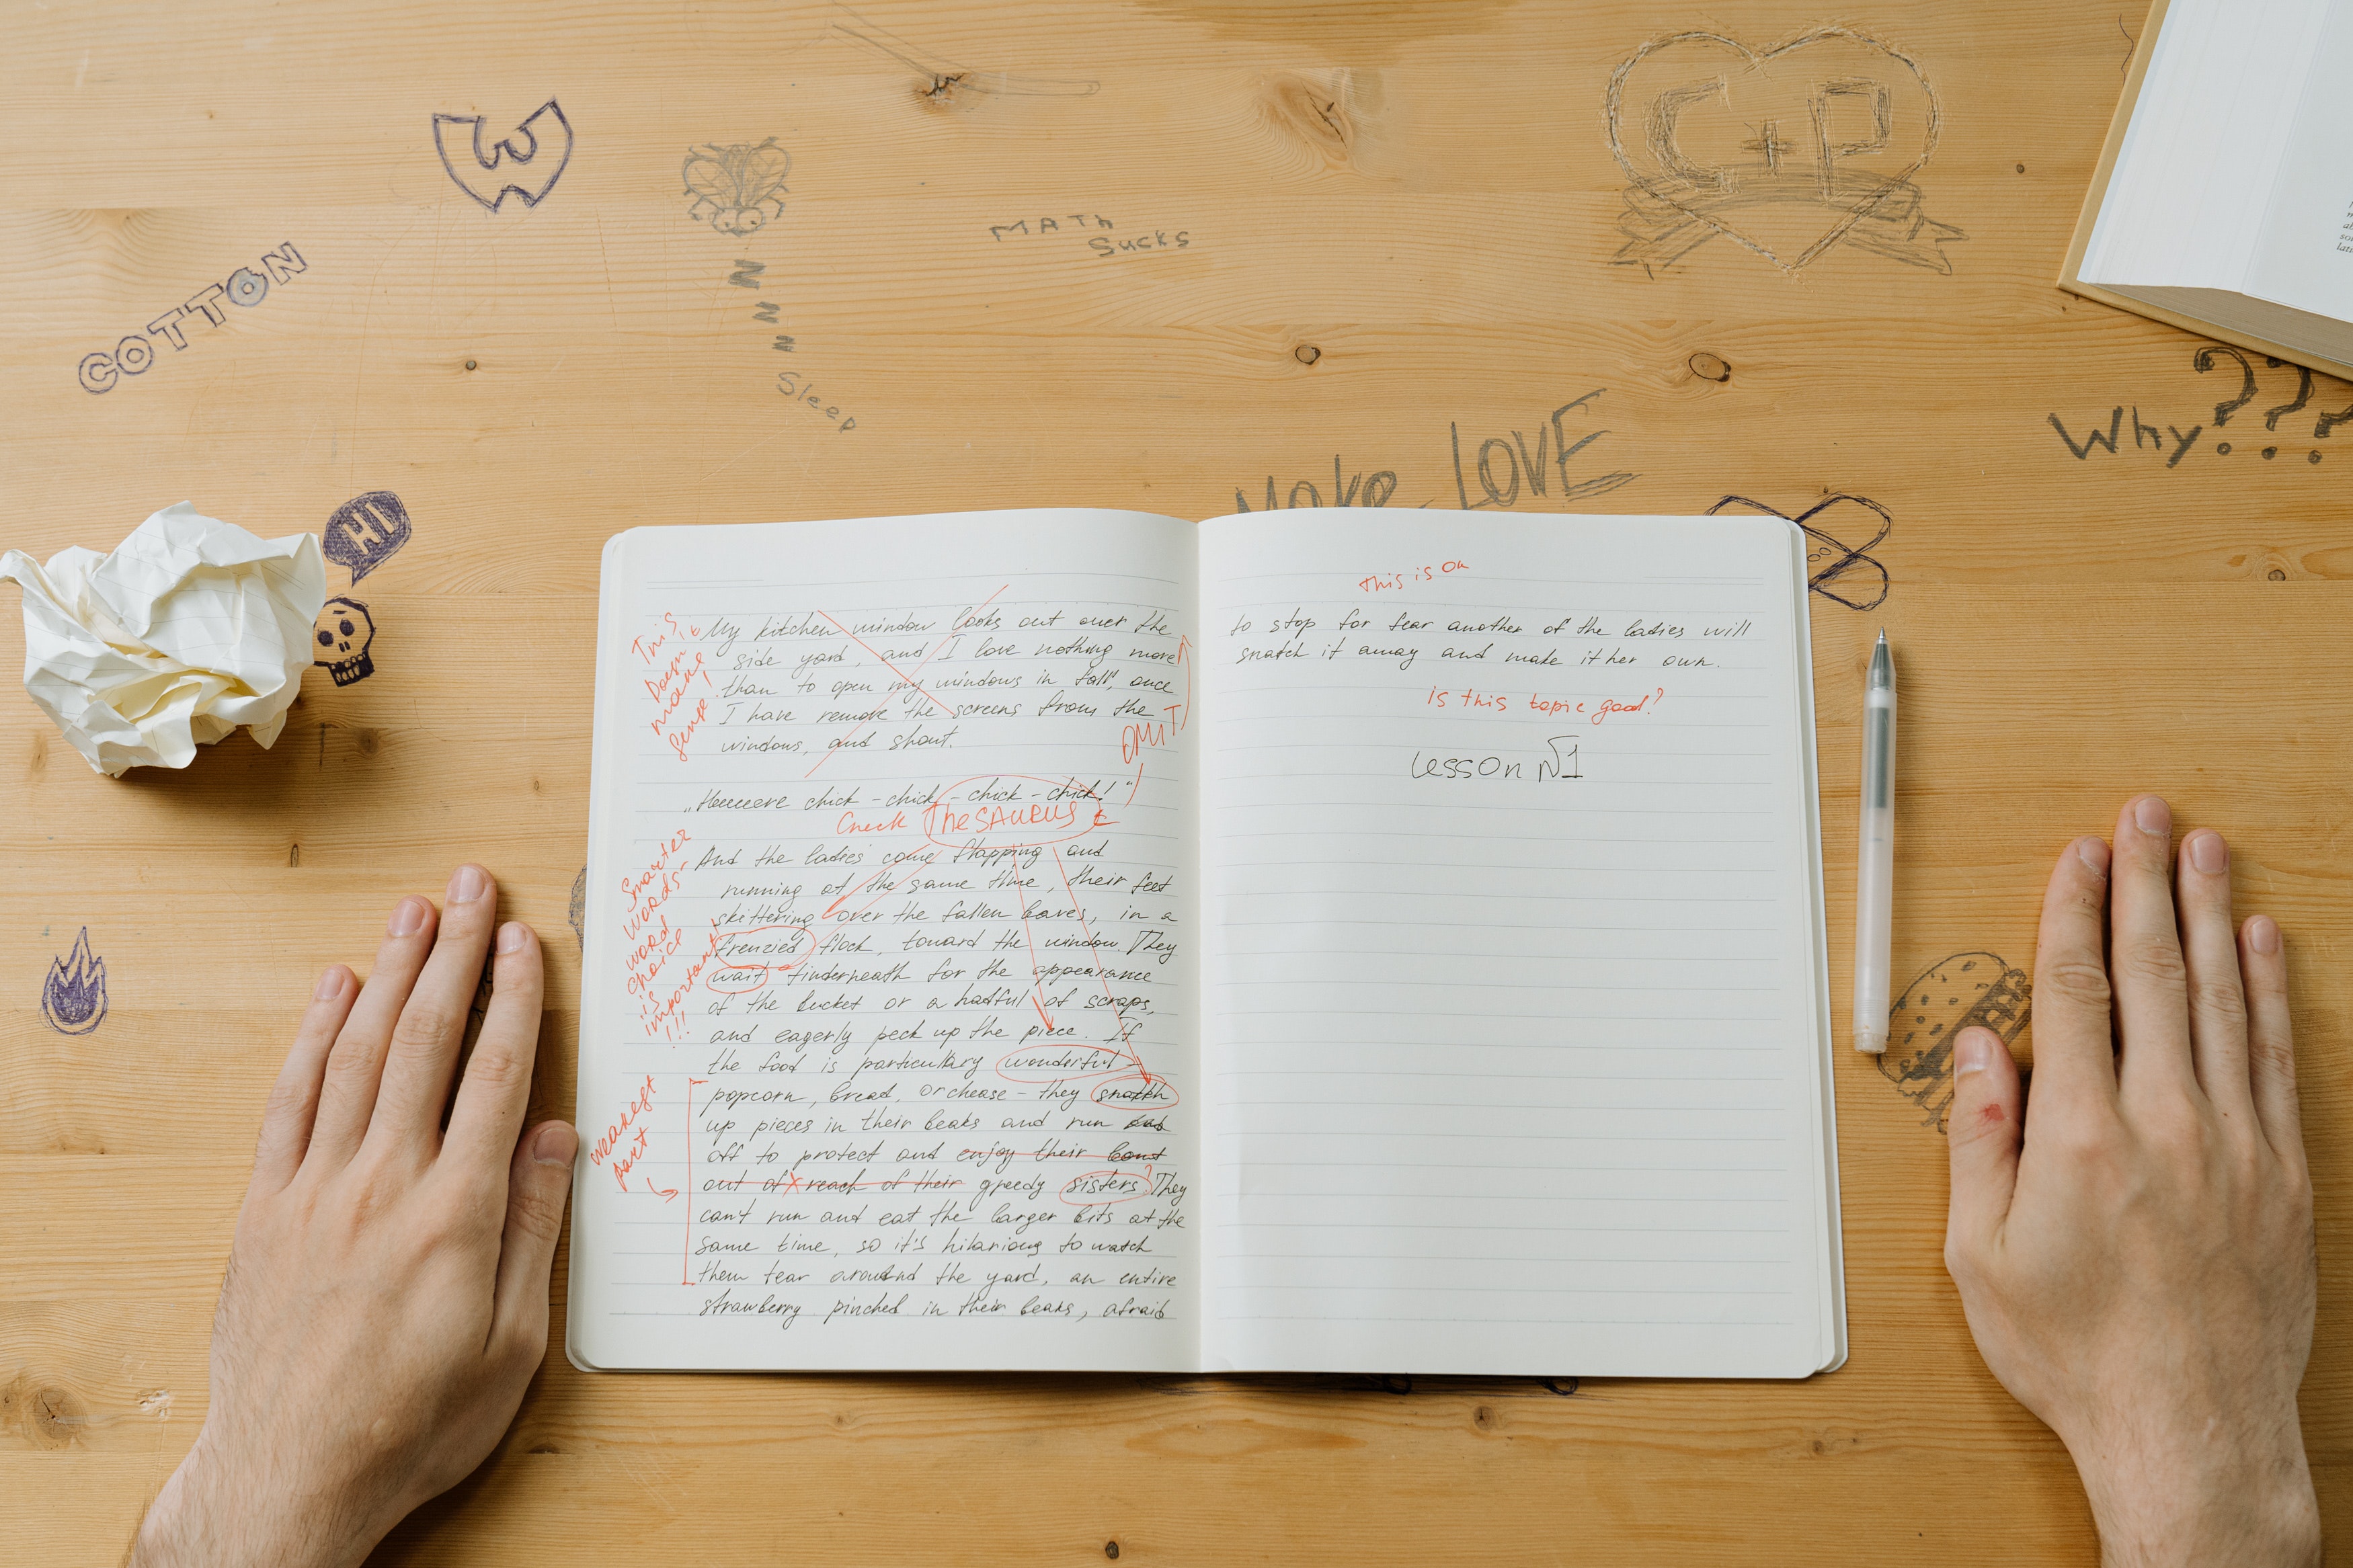 W
COTTON
N
N
N
Sleep
MATh
Sucks
C+P
Make LOVE
Why???
HI
This
Doesn't
make
sense!
My kitchen window looks out over the
side yard, and I love nothing more
than to open my windows in fall, once
I have remove the screens from the
windows, and shout.
OMIT
„Heeeeere chick - chick - chick - chick! "
Check TheSAURUS
Smarter
words-
word
choice
is
important
!!!
And the ladies come flapping and
running at the same time, their feet
skittering over the fallen leaves, in a
frenzied flock, toward the window. They
wait underneath for the appearance
of the bucket or a hatful of scraps,
and eagerly peck up the piece. If
the food is particullary wonderful -
weakest
part
popcorn, bread, or chease - they snatch
up pieces in their beaks and run out
off to protect and enjoy their bount
out of reach of their greedy sisters? They
can't run and eat the larger bits at the
same time, so it's hilarious to watch
them tear around the yard, an entire
strawberry pinched in their beaks, afraid
this is on
to stop for fear another of the ladies will
snatch it away and make it her own.
is this topic good?
Lesson №1